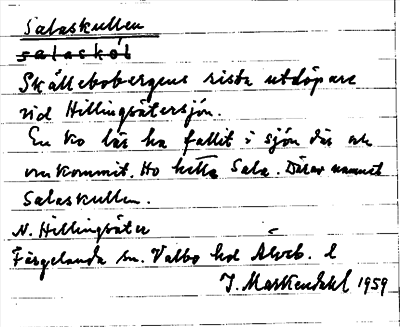 Salaskullen
salaskòl
Skållebobergens sista utlöpare
vid Hillingsätersjön.
En ko läs ha fallit i sjön där och
omkommit. Ho hette Sala. Därav namnet
Salaskullen.
N. Hillingsäter
Färgelanda sn. Valbo hd Älvsb. l
J. Markendahl 1959